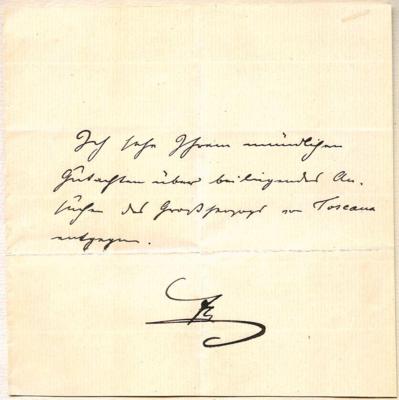 Ich sehe Ihrem mündlichen
Gutachten über beiliegendes An-
suchen des Großherzogs von Toscana
entgegen.